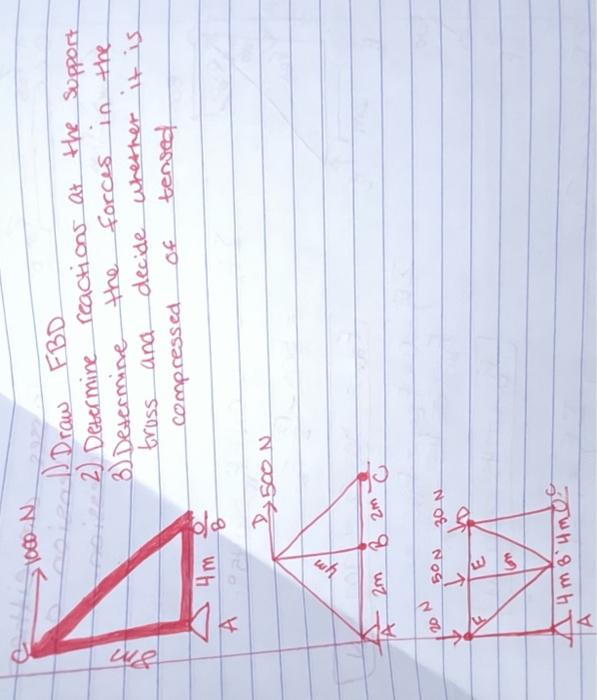 1) Draw FBD
2) Determine reactions at the support
3) Determine the forces in the
truss and decide whether it is
compressed of tensed
C 1000 N
4m
A B
D 500 N
4m
A 2m B 2m C
20 N 50 N 30 N
F E D
A 4m B 4m C